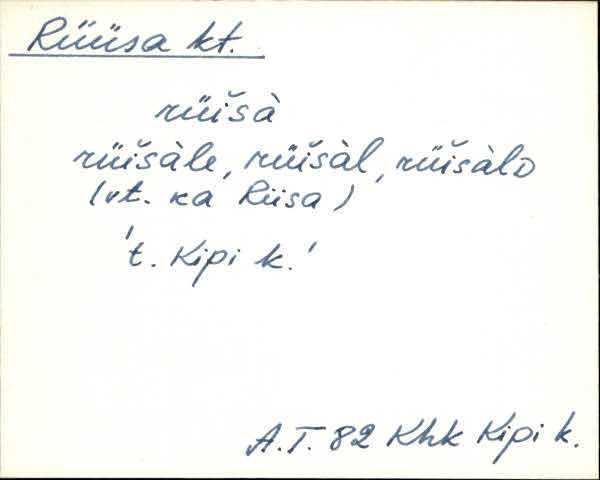 Rüüsa kt.
rüišà
rüišàle, rüišàl, rüišàlo
(vt. ka Riisa)
't. Kipi k.'
A.T. 82 Khk Kipi k.